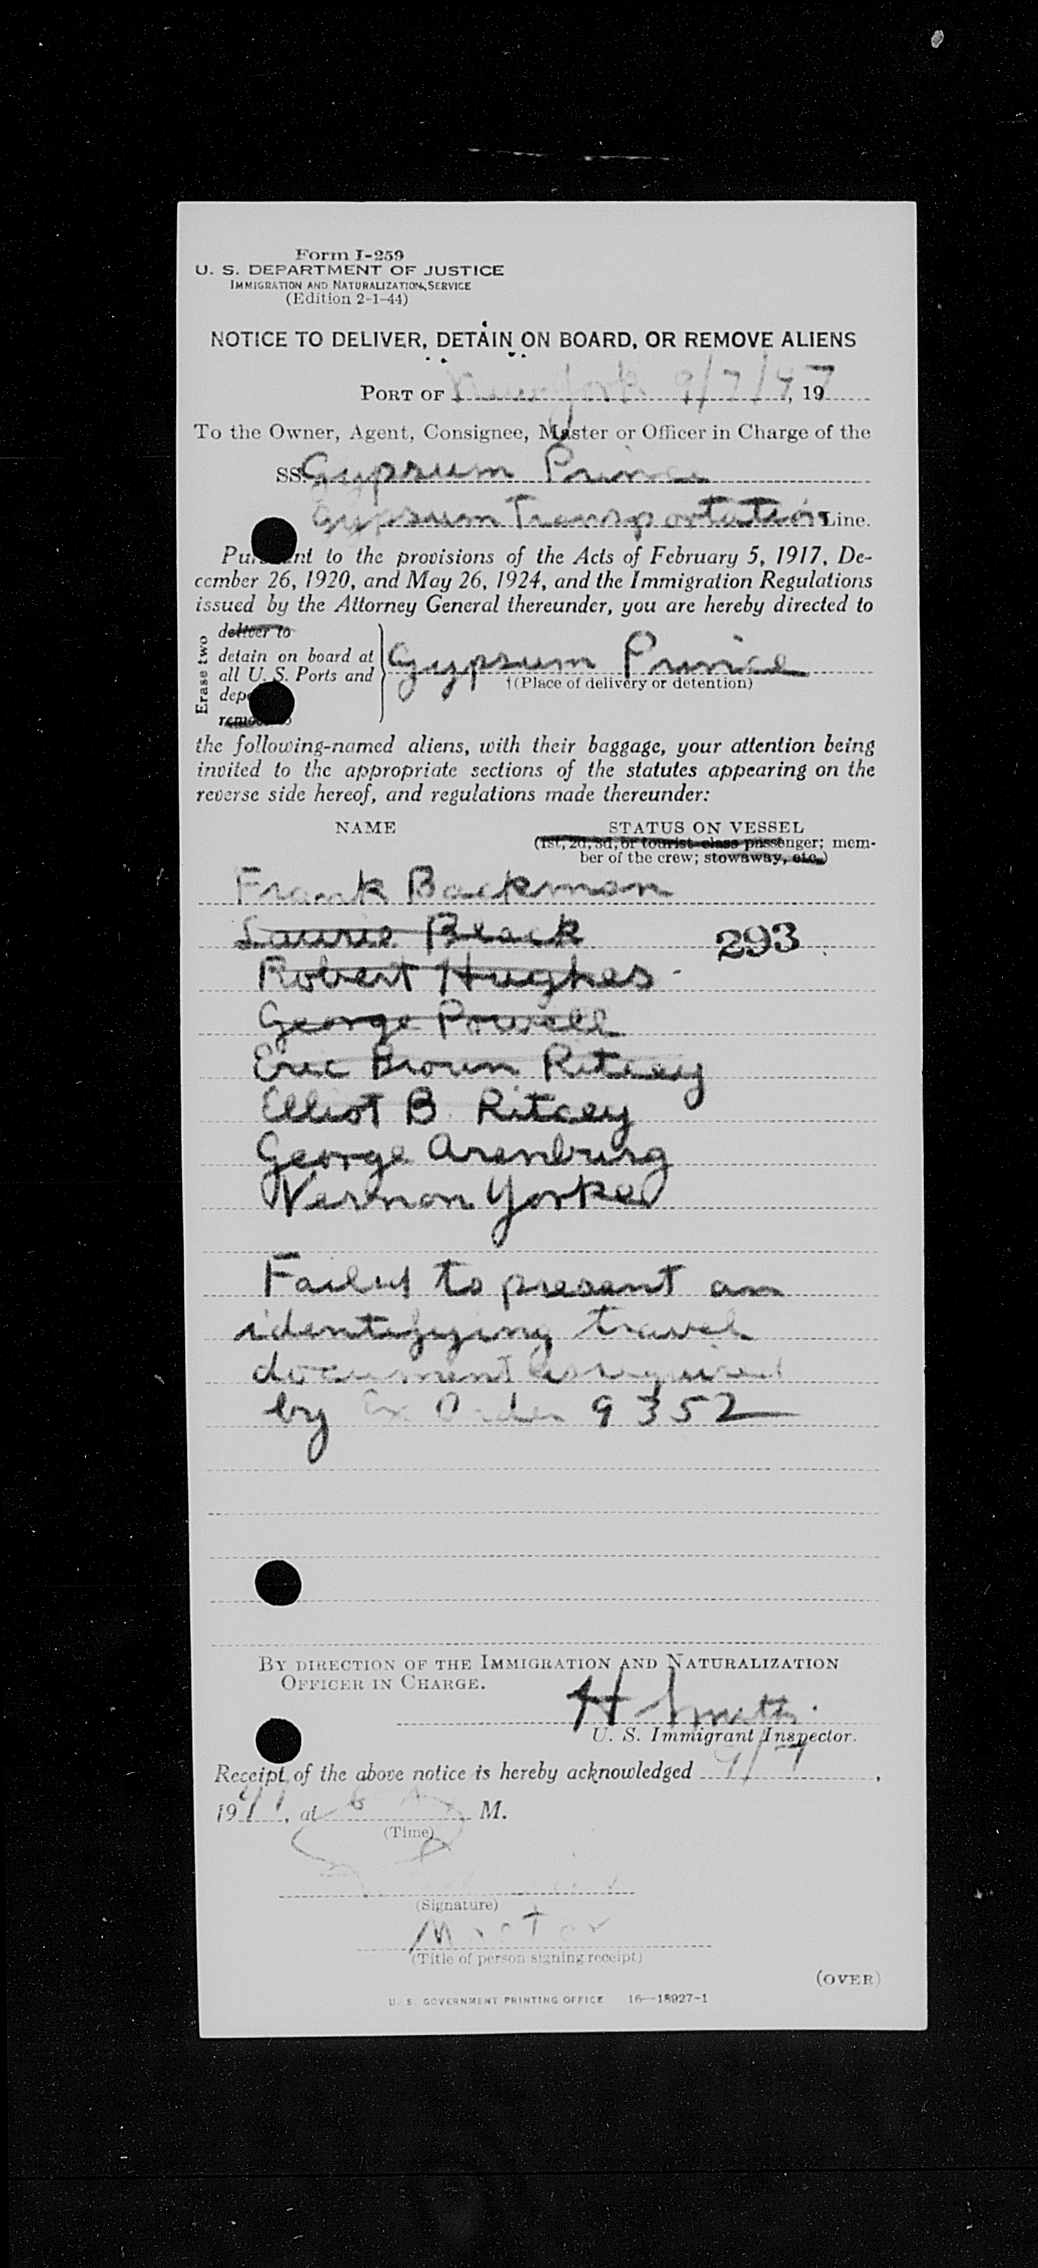 Form I-259
U. S. DEPARTMENT OF JUSTICE
IMMIGRATION AND NATURALIZATION SERVICE
(Edition 2-1-44)
NOTICE TO DELIVER, DETAIN ON BOARD, OR REMOVE ALIENS
PORT OF New York 9/7/47, 19
To the Owner, Agent, Consignee, Master or Officer in Charge of the
SS Gypsum Prince
Gypsum Transportation Line.
Pursuant to the provisions of the Acts of February 5, 1917, De-
cember 26, 1920, and May 26, 1924, and the Immigration Regulations
issued by the Attorney General thereunder, you are hereby directed to
Erase two
deliver to
detain on board at
all U. S. Ports and
remove to
Gypsum Prince
†(Place of delivery or detention)
the following-named aliens, with their baggage, your attention being
invited to the appropriate sections of the statutes appearing on the
reverse side hereof, and regulations made thereunder:
NAME STATUS ON VESSEL
(1st, 2d, 3d, or tourist-class passenger; mem-
ber of the crew; stowaway, etc.)
Frank Backman
Laurie Black 293
Robert Hughes
George Powell
Eric Brown Ritcey
Elliot B Ritcey
George Arenburg
Vernon Yorke
Failed to present an
identifying travel
document as required
by Ex Order 9352
BY DIRECTION OF THE IMMIGRATION AND NATURALIZATION
OFFICER IN CHARGE.
H Smith
U. S. Immigrant Inspector.
Receipt of the above notice is hereby acknowledged 9/7,
19, at M.
(Time)
(Signature)
Master
(Title of person signing receipt)
(OVER)
U. S. GOVERNMENT PRINTING OFFICE 16—18927-1